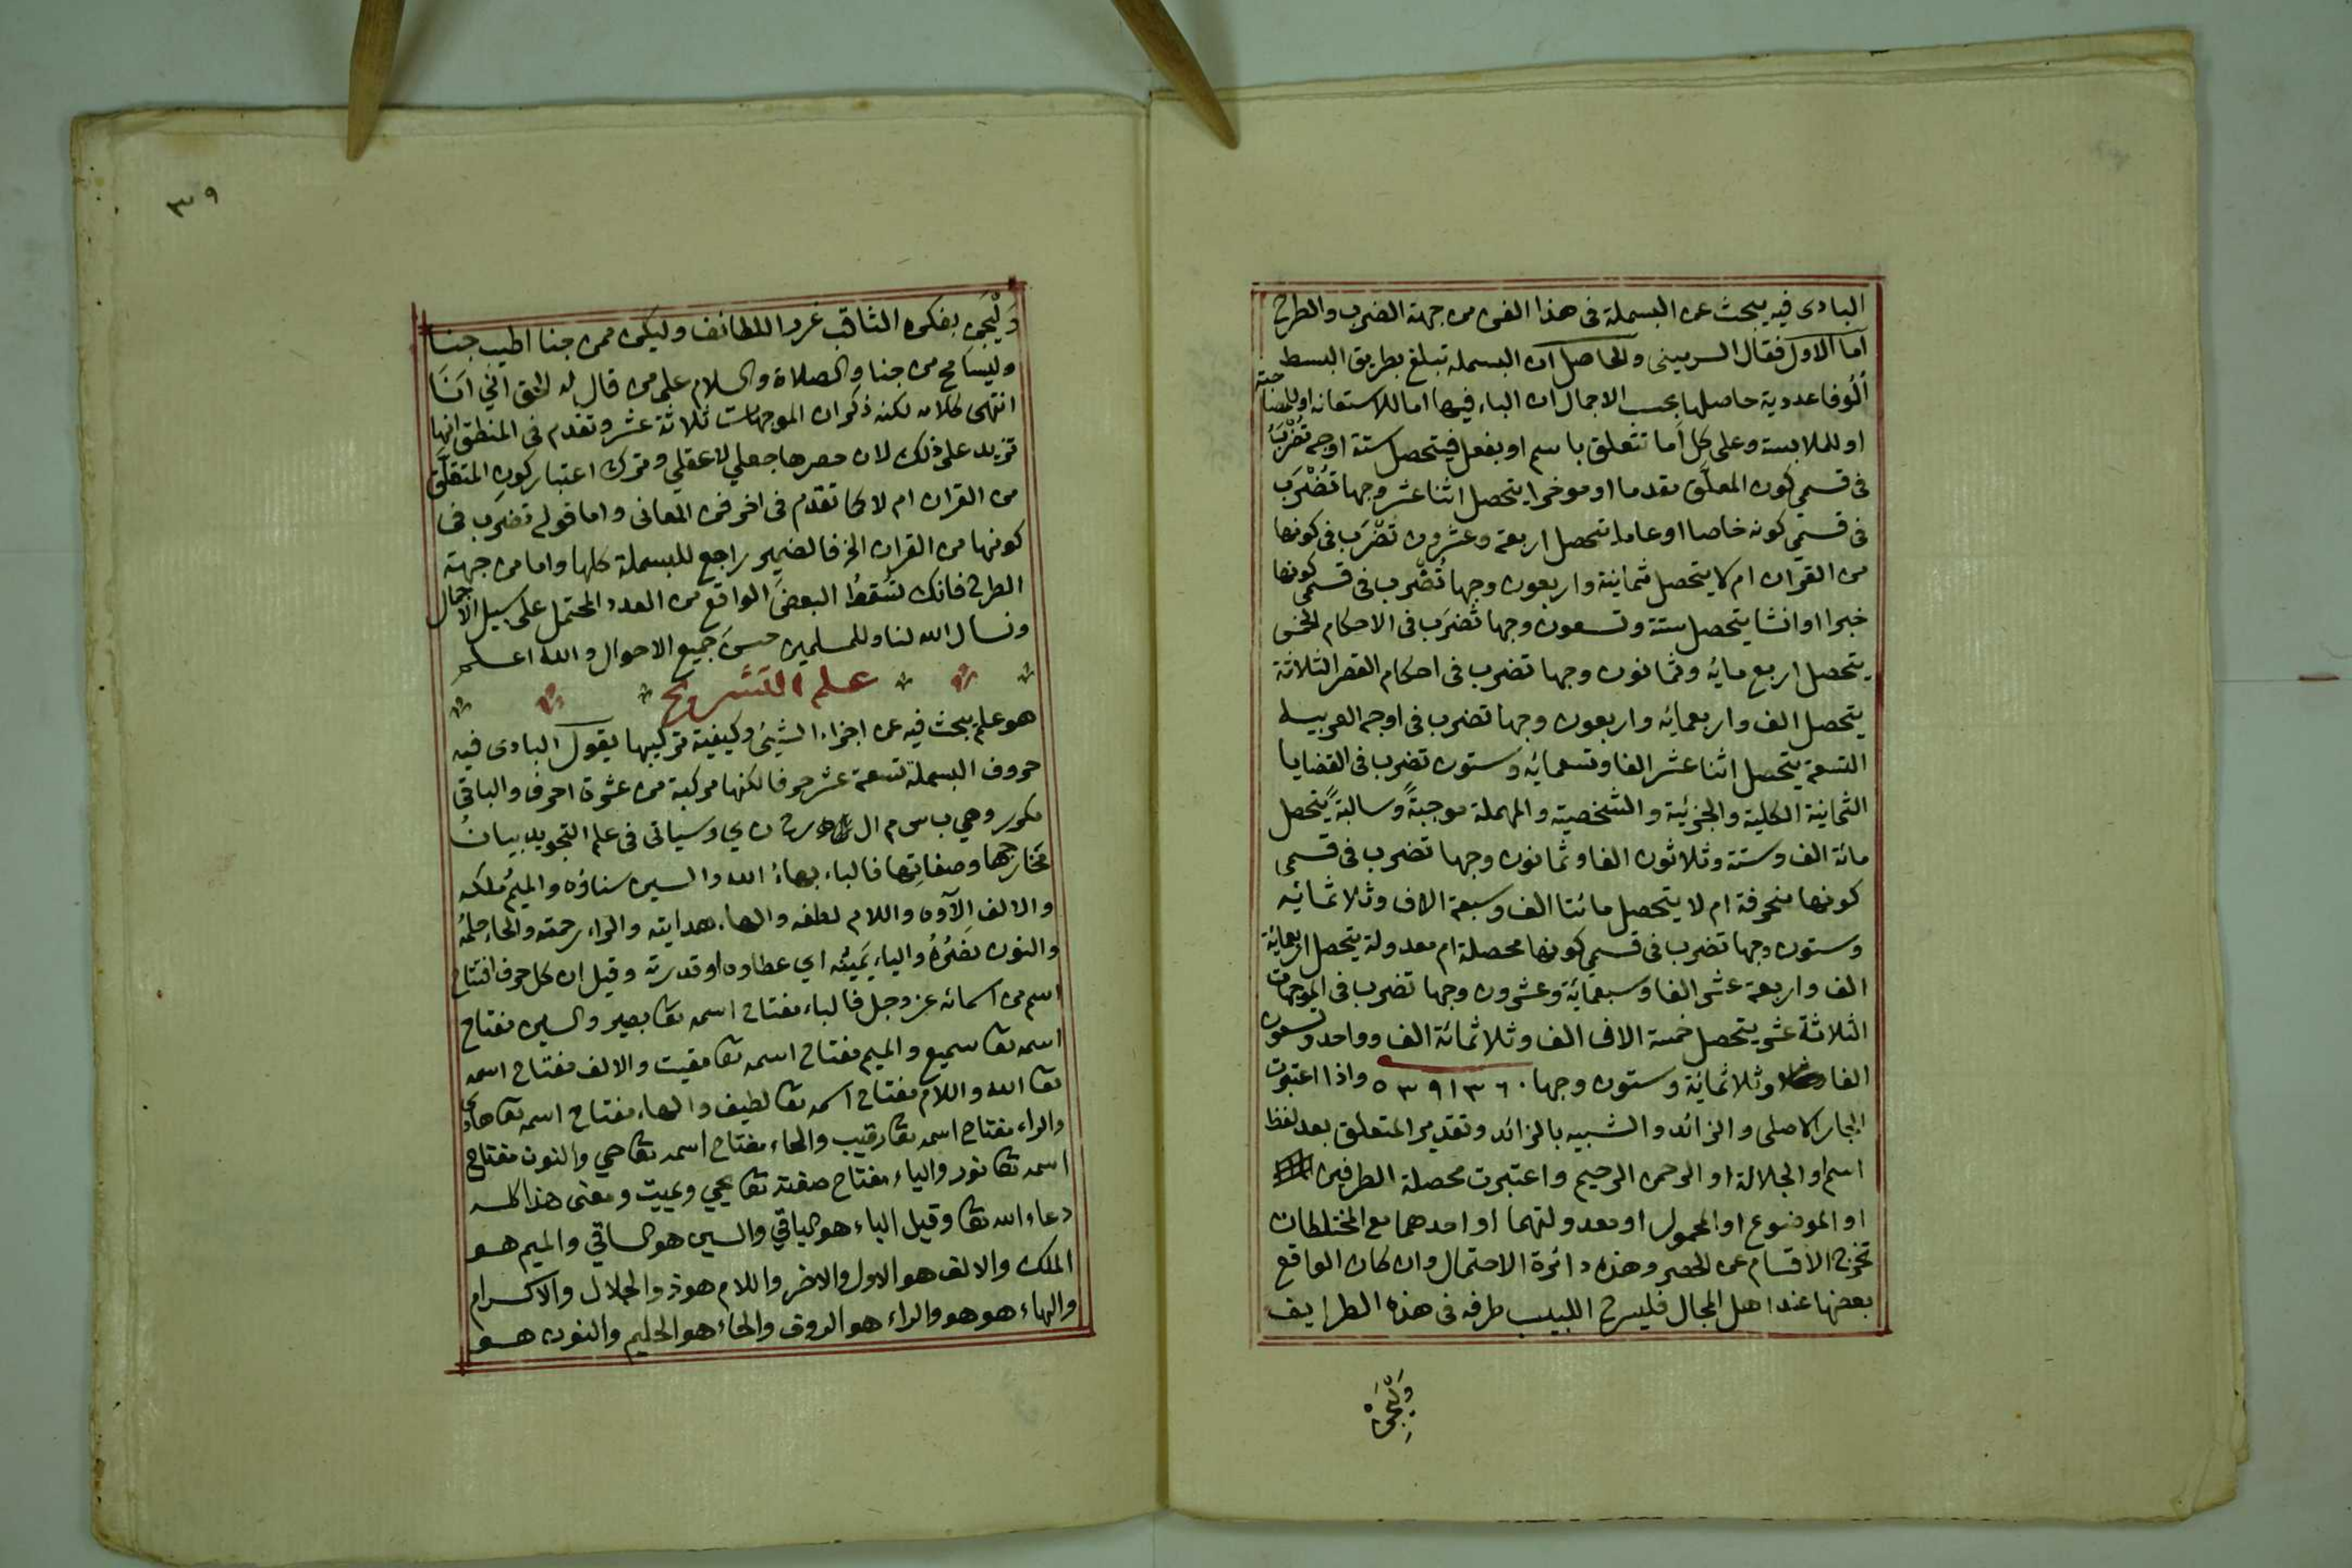 البادى فيه يبحث عن البسملة فى هذا الفن من جهة الضرب والطرح
أما الأول فقال السرمينى والحاصل ان البسملة تبلغ بطريق البسط
ألوفا عددية حاصلها بحسب الاجمال ان الباء فيها اما للاستعانه او للمصاحبة
او للملابسة وعلى كل أما تتعلق باسم او بفعل فيتحصل ستة اوجه تُضْرَبُ
فى قسمي كون المعلَّق مقدما او موخرا يتحصل اثنا عشر وجها تُضْرَب
فى قسمي كونه خاصا او عاما يتحصل اربعة وعشرون تضْرَب فى كونها
من القرآن ام لا يتحصل ثمانية واربعون وجها تُضْرب فى قسمي كونها
خبرا او انشا يتحصل ستة وتسعون وجها تُضرَب فى الاحكام الخمس
يتحصل اربع مايه وثمانون وجها تضرب فى احكام القصر الثلاثة
يتحصل الف واربعمائه واربعون وجها تضرب فى اوجه العربيه
التسعة يتحصل اثنا عشر الفا وتسعمائه وستون تضرب فى القضايا
الثمانية الكلية والجزئية والشخصية والمهملة موجبةً وسالبةً يتحصل
مائة الف وستة وثلاثون الفا وثمانون وجها تضرب فى قسمي
كونها منحرفة ام لا يتحصل مائتا الف وسبعة الاف وثلاثمائيه
وستون وجها تضرب فى قسمي كونها محصلة ام معدولة يتحصل اربعمائة
الف واربعة عشر الفا وسبعمائة وعشرون وجها تضرب فى الموجهات
الثلاثة عشر يتحصل خمسة الاف الف وثلاثمائة الف وواحد وتسعون
الفا وثلاثمائة وستون وجها ٥٣٩١٣٦٠ واذا اعتبرت
الجار الاصلى والزائد والشبيه بالزائد وتقدير المتعلق بعد لفظ
اسم او الجلالة او الرحمن الرحيم واعتبرت محصلة الطرفين
او الموضوع او المحمول او معدولتهما او احدهما مع المختلطات
تخرج الاقسام عن الحصر وهذه دائرة الاحتمال وان كان الواقع
بعضها عند اهل المجال فليسرح اللبيب طرفه فى هذه الطرايف
وَلْيَجْنِ
٣٩
وَلْيَجْنِ بفكره الثاقب غرر اللطائف وليكن ممن جنا اطيب جنا
وليسامح من جنا والصلاة والسلام على من قال له الحق انّي اَنَا
انتهى كلامه لكنه ذكر ان الموجهات ثلاثة عشر وتقدم فى المنطق انها
تزيد على ذلك لان حصرها جعلي لا عقلي وترك اعتبار كون المتعلَّق
من القران ام لا كما تقدَّم فى اخر فن المعانى واما قوله تضرَب فى
كونها من القران الخ فالضمير راجع للبسملة كلها واما من جهة
الطرح فانك تسقطُ البعضَ الواقع من العدد المحتمل على سبيل الاجمال
ونسال الله لنا وللمسلمين حسنَ جميع الاحوال والله اعلم
علم التشريح
هو علم يبحث فيه عن اجزاء الشيئ وكيفية تركيبها يقول البادى فيه
حروف البسملة تسعة عشر حرفا لكنها مركبة من عشرة احرف والباقى
مكرر وهي ب س م ا ل ه ر ح ن ي وسياتى فى علم التجويد بيانُ
مخارجها وصفاتِها فالباء بهاءُ الله والسين سناؤه والميمُ ملكه
والالف الآوه واللام لطفه والهاء هدايته والراء رحمته والحاء حلمُه
والنون نصْرُهُ والياء يَمينُه اي عطاوه او قدرته وقيل ان كل حرف افتتاح
اسم من اسمائه عز وجل فالباء مفتاح اسمه تعا بصير والسين مفتاح
اسمه تعا سميع والميم مفتاح اسمه تعا مقيت والالف مفتاح اسمه
تعا الله واللام مفتاح اسمه تعا لطيف والهاء مفتاح اسمه تعا هادي
والراء مفتاح اسمه تعا رقيب والحاء مفتاح اسمه تعا حي والنون مفتاح
اسمه تعا نور والياء مفتاح صفته تعا يحيي ويميت ومعنى هذا كله
دعاء الله تعا وقيل الباء هو الباقي والسين هو الساقي والميم هو
الملك والالف هو الاول والاخر واللام هو ذو الجلال والاكرام
والهاء هو هو والراء هو الروف والحاء هو الحليم والنون هو